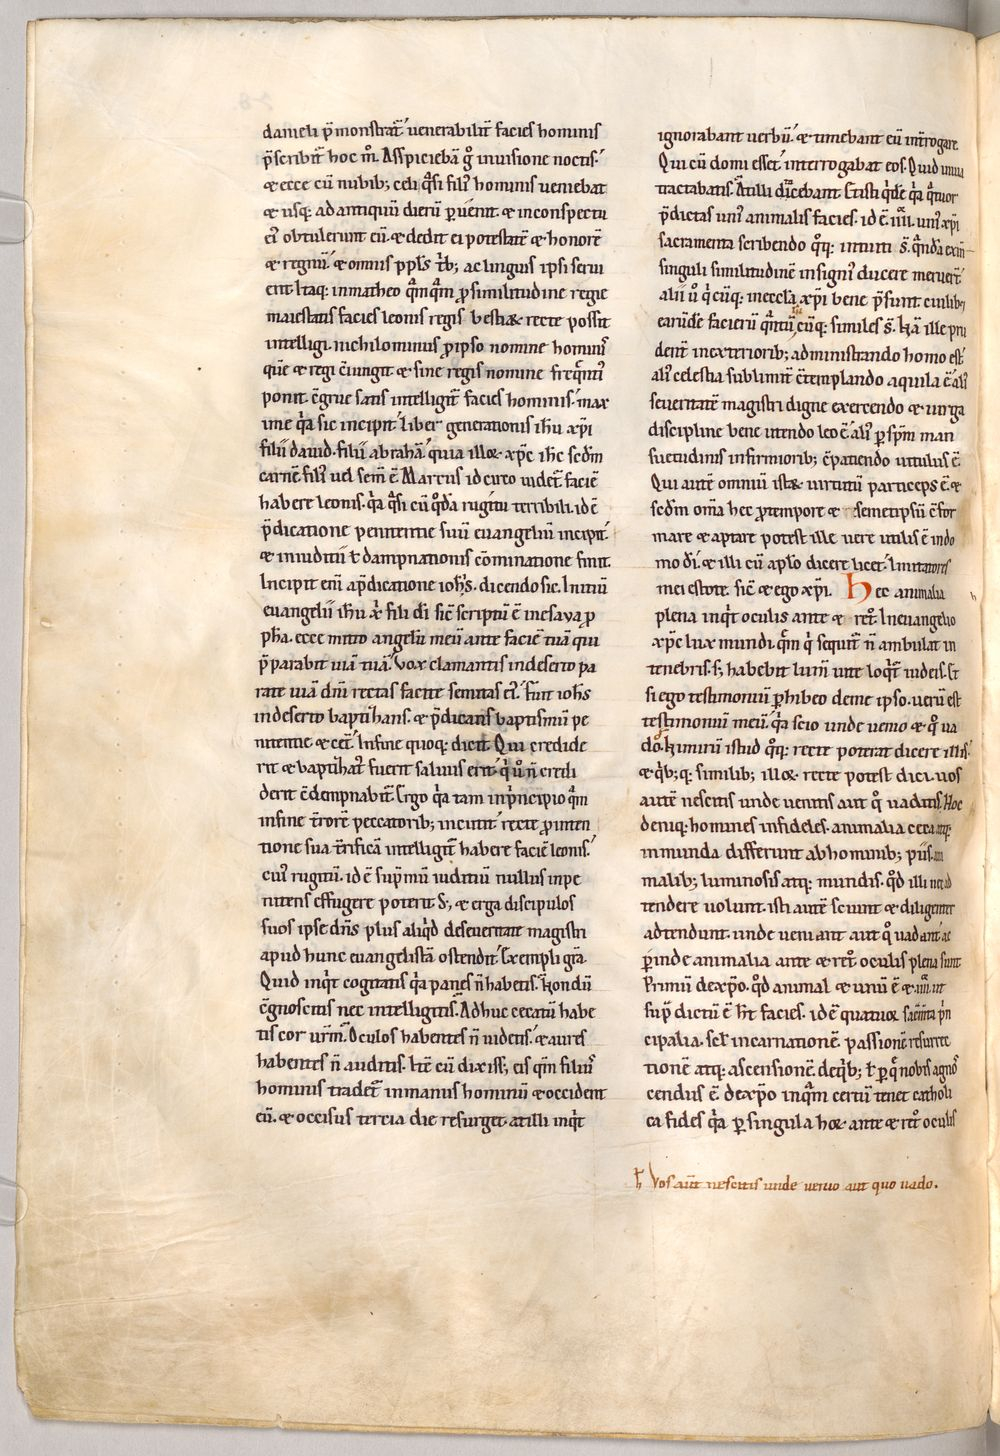 danieli p̄monstrat᷑ uenerabilit᷑ facies hominis
p̄scribit᷑ hoc m̊. Asspiciebā g̊ inuisione noctis.
& ecce cū nubib; celi q̄si fili᷒ hominis ueniebat
& usq; ad antiquū dierū ꝑuenit. & inconspectu
ei᷒ obtulerunt eū. & dedit ei potestatē & honorē
& regnū. & omnis ppl̄s t̄b; ac linguis ipsi serui
ent. Itaq; inmatheo q̄mq̄m ꝓsimilitudine regie
maiestatis facies leonis regis bestiaꝝ recte possit
intelligi. nichilominus ꝓipso nomine hominis
quē & regi c̄iungit & sine regis nomine freq̄nti᷒
ponit. c̄grue satis intelligit᷑ facies hominis. max
ime q̄a sic incipit. liber generationis ih̄u xp̄i
filii dauid. filii abrahā. quia illoꝝ xp̄c ih̄c scd̄m
carnē. fili᷒ uel semē ē. Marcus idcirco uidet᷑ faciē
habere leonis. q̄a q̄si cū q̊dā rugitu terribili. id ē
p̄dicatione penitentie suū euangeliū incipit.
& iniuditii t̄ dampnationis cōminatione finit.
Incipit eni᷑ ap̄dicatione ioh̄s. dicendo sic. Initiū
euangelii ih̄u x̄ fili dī sic̄ scriptū ē inesaya ꝓ
ph̄a. ecce mitto angelū meū ante faciē tuā qui
p̄parabit uiā tuā. Vox clamantis indeserto pa
rate uiā dn̄i rectas facite semitas ei᷒. Fuit ioh̄s
indeserto baptihans. & p̄dicans baptismū pe
nitentie. & cet̄. Infine quoq; dicit. Qui credide
rit & baptihat᷒ fuerit saluus erit. q̄ ů n̄ credi
derit c̄dempnabit᷑. Ergo q̄a tam inp̄ncipio q̄m
infine t̄rorē peccatorib; incutit. recte ꝓinten
tione sua t̄rificā intelligit᷑ habere faciē leonis.
cui᷒ rugitū. id ē sup̄mū iuditiū nullus inpe
nitens effugere poterit. S; & erga discipulos
suos ipse dn̄s plus aliq̄d deseueritate magistri
apud hunc euangelistā ostendit. Exempli gr̄a.
Quid inq̄t cogitatis q̄a panes n̄ habetis. Nondū
c̄gnoscitis nec intelligitis. Adhuc cecatū habe
tis cor ur̄m. Oculos habentes n̄ uidetis. & aures
habentes n̄ auditis. Itē cū dixiss; eis q̄m filius
hominis tradet᷑ inmanus hominū & occident
eū. & occisus tercia die resurget. at illi inq̄t
ignorabant uerbū. & timebant eū int̄rogare.
Qui cū domi esset. interrogabat eos. Quid inuia
tractabatis. At illi dicebant. Et isti q̄de q̄a q̄tuor
p̄dictas uni᷒ animalis facies. id ē. iiii. uni᷒ xp̄i
sacramenta scribendo q̊q; intuiti s̄. q̄ndā exim
singuli similitudinē insigni᷒ ducere meruer̄t.
alii ů q̄cūq; ineccl̄a xp̄i bene p̄sunt. cuilib;
earūde facierū q̄ntū cūq; similes s̄. Nā ille pru
dent᷑ inexteriorib; administrando homo est.
ali᷒ celestia sublimit᷑ c̄templando aquila ē. ali᷒
seueritatē magistri digne exercendo & uirga
discipline bene utendo leo ē. ali᷒ ꝑ sp̄m man
suetudinis infirmiorib; c̄patiendo uitulus ē.
Qui autē omniū istaꝝ uirtutū particeps ē. &
scd̄m om̄ia hec ꝓtempore & semetipsū c̄for
mare & aptare potest ille uere utilis ē indo
mo dī. & illi cū aplo dicere licet. Imitatores
mei estote. sic̄ & ego xp̄i. Hec animalia
plena inq̄t oculis ante & ret̊. In euangelio
xp̄c lux mundi. q̄m q̄ sequit᷑ n̄ ambulat in
tenebris. s; habebit lum̄ uite loq̄t᷑ iudeis. Et
si ego testimoniū ꝑhibeo deme ipso. uerū est
testimoniū meū. q̄a scio unde uenio & q̊ ua
do. Nimirū istud q̊q; recte poterat dicere illis.
& q̄b;q; similib; illoꝝ recte potest dici. uos
autē nescitis unde uenitis aut q̊ uaditis. Hoc
deniq; homines infideles. animalia ceca atq;
inmunda differunt abhominib; piis. ani
malib; luminosis atq; mundis. q̊d illi nec ad
tendere uolunt. isti autē sciunt & diligenter
adtendunt. unde ueniant aut q̊ uadant. ac
ꝑinde animalia ante & ret̊ oculis plena sunt.
Primū dexp̄o. q̊d animal & unū ē & iiii. ut
sup̄ dictū ē h̄t facies. id ē quatuor sacm̄ta p̄n
cipalia. scl̄ incarnationē passionē resurrec
tionē atq; ascensionē. deq̄b; t̄ ꝑ q̄ nobis agno
cendus ē. dexp̄o inq̄m certū tenet catholi
ca fides q̄a ꝑ singula hoꝝ ante & ret̊ oculis
h̄ Vos aut̄ nescitis unde uenio aut quo uado.